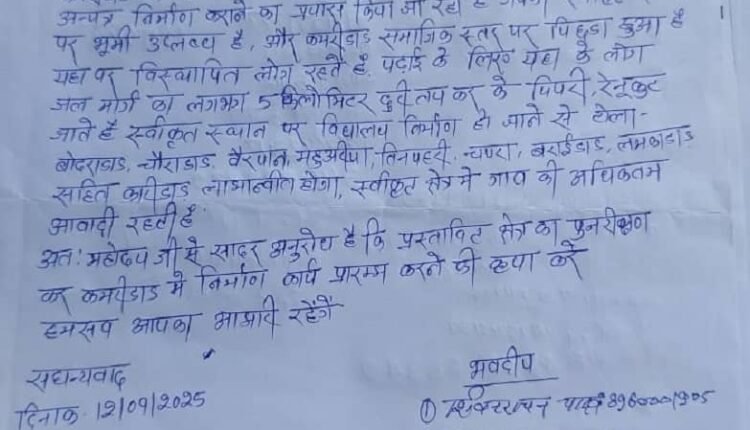 अन्यत्र निर्माण कराने का प्रयास किया जा रहा है
पर भूमी उपलब्ध है, और कमरीडाड समाजिक स्तर पर पिछडा हुआ है
यहा पर विस्थापित लोग रहते है पढाई के लिए यहा के लोग
जल मार्ग का लगभग 5 किलोमिटर दुरी तय कर के पिपरी, रेनूकुट
जाते है स्वीकृत स्थान पर विद्यालय निर्माण हो जाने से टोला-
बोदराडाड, चौराडाड वैरपान, महुअरीया, तिनपहरी, चपरा, बराईडाड, लमकाडाड
सहित कमरीडाड लाभान्वीत होगा, स्वीकृत क्षेत्र मे गाव की अधिकतम
आवादी रहती है
अतः महोदय जी से सादर अनुरोध है कि प्रस्तावित क्षेत्र का पुनरीक्षण
कर कमरीडाड मे निर्माण कार्य प्रारम्भ करने की कृपा करे
हमसव आपका आभारी रहेंगें
सधन्यवाद
दिनाक 12/09/2025
भवदीप
①